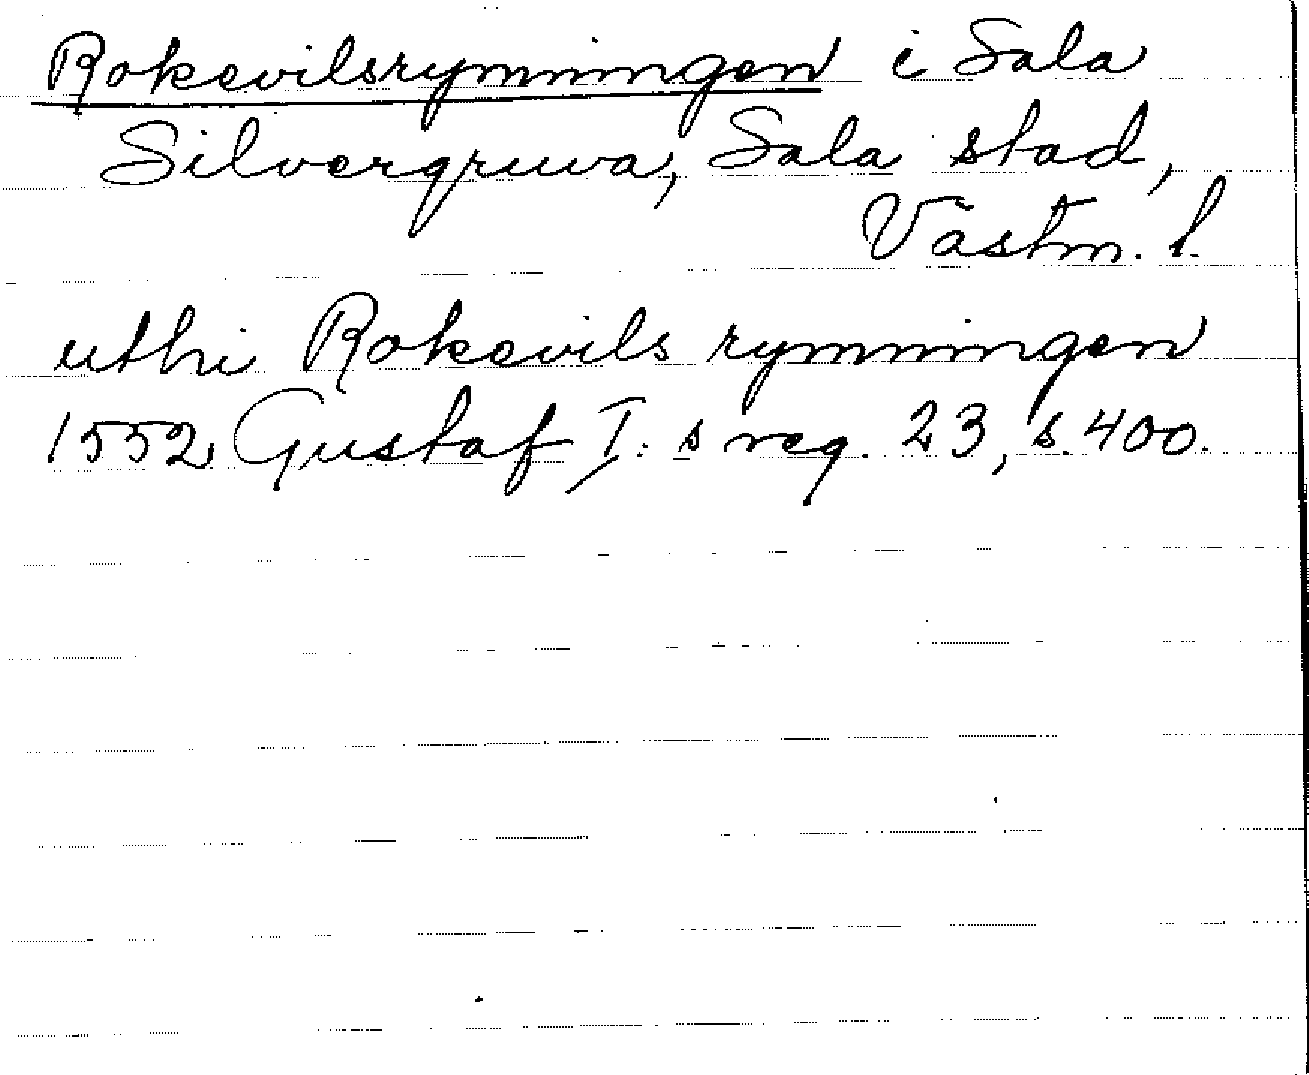 Rokevilsrymningen i Sala
Silvergruva, Sala stad,
Västm. l.
uthi Rokevils rymningen
1552 Gustaf I:s reg. 23, s. 400.